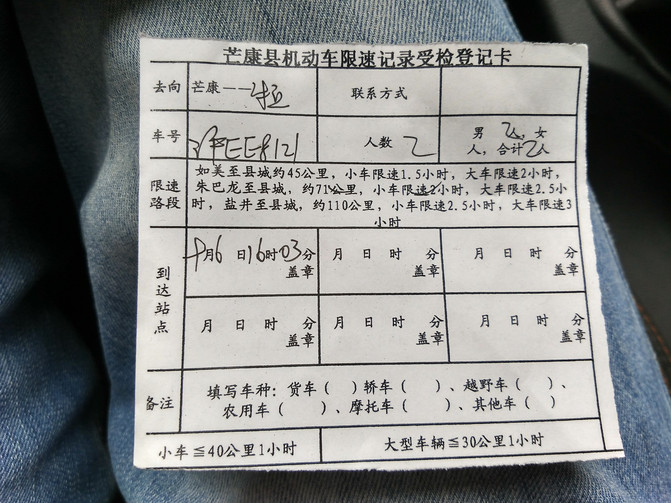 芒康县机动车限速记录受检登记卡
去向 芒康—— 联系方式
车号 EE8121 人数 2 男 2人, 女
人, 合计2人
限速路段 如美至县城约45公里, 小车限速1.5小时, 大车限速2小时,
朱巴龙至县城, 约71公里, 小车限速2小时, 大车限速2.5小
时, 盐井至县城, 约110公里, 小车限速2.5小时, 大车限速3
小时
到达站点 月6日16时03分 月 日 时 分 月 日 时 分
盖章 盖章 盖章
月 日 时 分 月 日 时 分 月 日 时 分
盖章 盖章 盖章
备注 填写车种: 货车( )轿车( )、越野车( )、
农用车( )、摩托车( )、其他车( )
小车≦40公里1小时 大型车辆≦30公里1小时